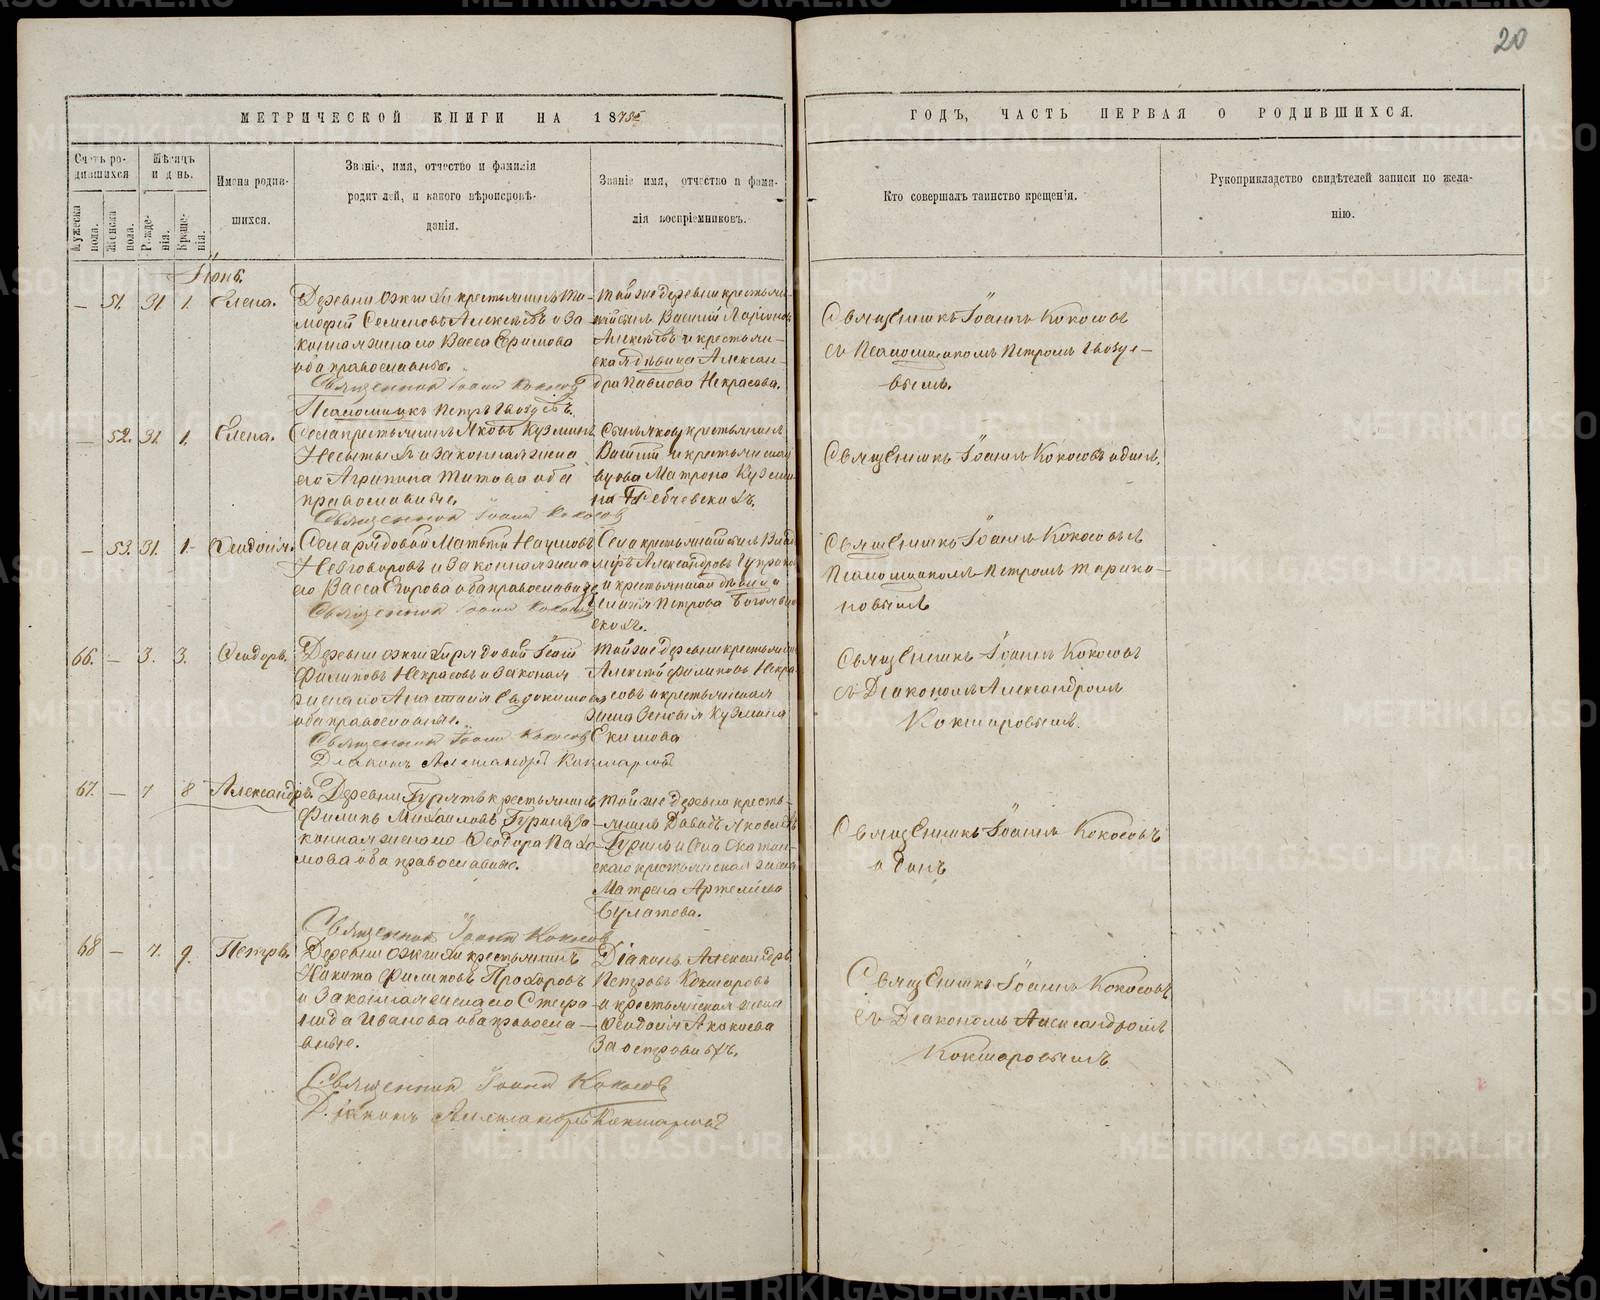 20
МЕТРИЧЕСКОЙ КНИГИ НА 1875
ГОДЪ, ЧАСТЬ ПЕРВАЯ О РОДИВШИХСЯ.
Счетъ родившихся
Мѣсяцъ и день.
Мужеска пола.
Женска пола.
Рожденія.
Крещенія.
Имена родившихся.
Званіе, имя, отчество и фамилія
родителей, и какого вѣроисповѣ-
данія.
Званіе имя, отчество и фами-
лія воспріемниковъ.
Кто совершалъ таинство крещенія.
Рукоприкладство свидѣтелей записи по жела-
нію.
Іюнь.
— 51. 31 1. Елена.
крестьянинъ Ти-
мофей Семеновъ Алексѣевъ и за-
конная жена его Васса Ефимова
оба православные.
Священникъ Іоаннъ Кокосовъ
Псаломщикъ Петръ Гвоздевъ.
Той же деревни крестьян-
Василий Ларіоновъ
Алексѣевъ и крестьян-
ская дѣвица Алексан-
дра Павлова Некрасова.
Священникъ Іоаннъ Кокосовъ
съ Псаломщикомъ Петромъ Гвозде-
вымъ.
— 52. 31. 1. Елена.
Села крестьянинъ Яковъ Кузминъ
и законная жена
его Агрипина Титова оба
православные.
Священникъ Іоаннъ Кокосовъ
крестьянинъ
Василий и крестьянская
вдова Матрона Кузми-
на
Священникъ Іоаннъ Кокосовъ одинъ.
— 53. 31. 1. Феодосія.
Села рядовой Матвей Наумовъ
Невговоровъ и законная жена
его Васса Егорова оба православные
Священникъ Іоаннъ Кокосовъ
Села крестьянский сынъ Влади-
миръ Александровъ
и крестьянская дѣвица
Петрова Богомол-
скихъ.
Священникъ Іоаннъ Кокосовъ съ
Псаломщикомъ Петромъ Тарака-
новымъ
66. — 3. 3. Феодоръ.
Деревни рядовой
Филиповъ Некрасовъ и законая
жена его Анастасія Евдокимова
оба православные.
Священникъ Іоаннъ Кокосовъ
Діаконъ Александръ Кокшаровъ
Той же деревни крестьянинъ
Алексѣй Филиповъ Некра-
совъ и крестьянская
жена Кузмина
Екимова
Священникъ Іоаннъ Кокосовъ
съ Діакономъ Александромъ
Кокшаровымъ.
67. — 7 8 Александръ.
Деревни крестьянинъ
Филипъ Михаиловъ Гуринъ за-
конная жена его Феодора Пахо-
мова оба православные.
Священникъ Іоаннъ Кокосовъ
Той же деревни кресть-
янинъ Давыдъ Яковлевъ
Гуринъ и села Скатин-
скаго крестьянская жена
Матрена Артемьева
Булатова.
Священникъ Іоаннъ Кокосовъ
одинъ
68 — 7. 9. Петръ.
Деревни крестьянинъ
Никита Филиповъ Прохоровъ
и законная жена его Стефа-
нида Иванова оба правосла-
вные.
Священникъ Іоаннъ Кокосовъ
Діаконъ Александръ Кокшаровъ
Діаконъ Александръ
Петровъ Кокшаровъ
и крестьянская жена
Феодосія Акакиева
Заостровныхъ.
Священникъ Іоаннъ Кокосовъ
съ Діакономъ Александромъ
Кокшаровымъ
METRIKI.GASO-URAL.RU